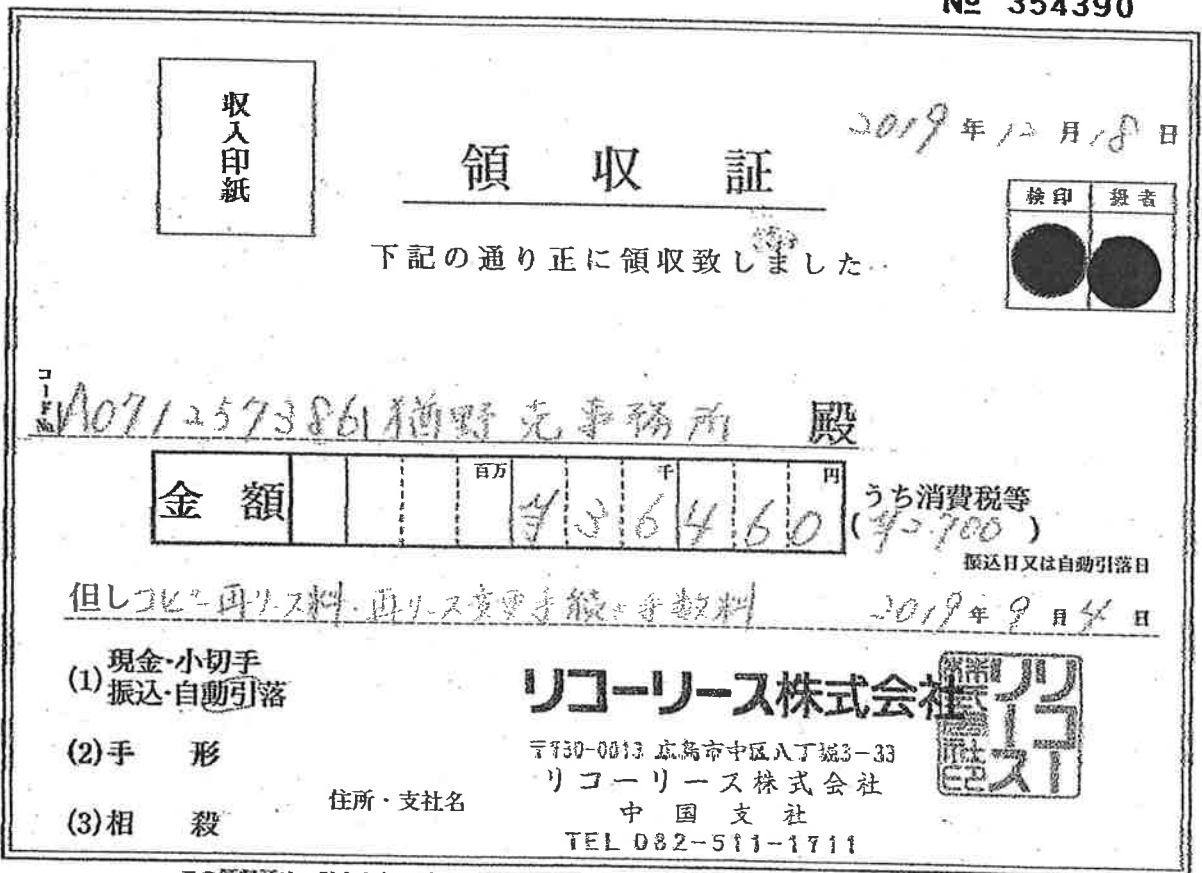 № 354390
収入印紙
2019年12月18日
領収証
検印 扱者
下記の通り正に領収致しました
コードNo. 0712573861 事務所 殿
金額 百万 千 円 ¥36460
うち消費税等
(¥2,700)
振込日又は自動引落日
但しコピー再リース料・再リース変更手続き手数料 2019年9月4日
(1)現金・小切手
振込・自動引落
(2)手形
(3)相殺
リコーリース株式会社
〒730-0013 広島市中区八丁堀3-33
リコーリース株式会社
住所・支社名
中国支社
TEL 082-511-1711
リコーリース株式会社